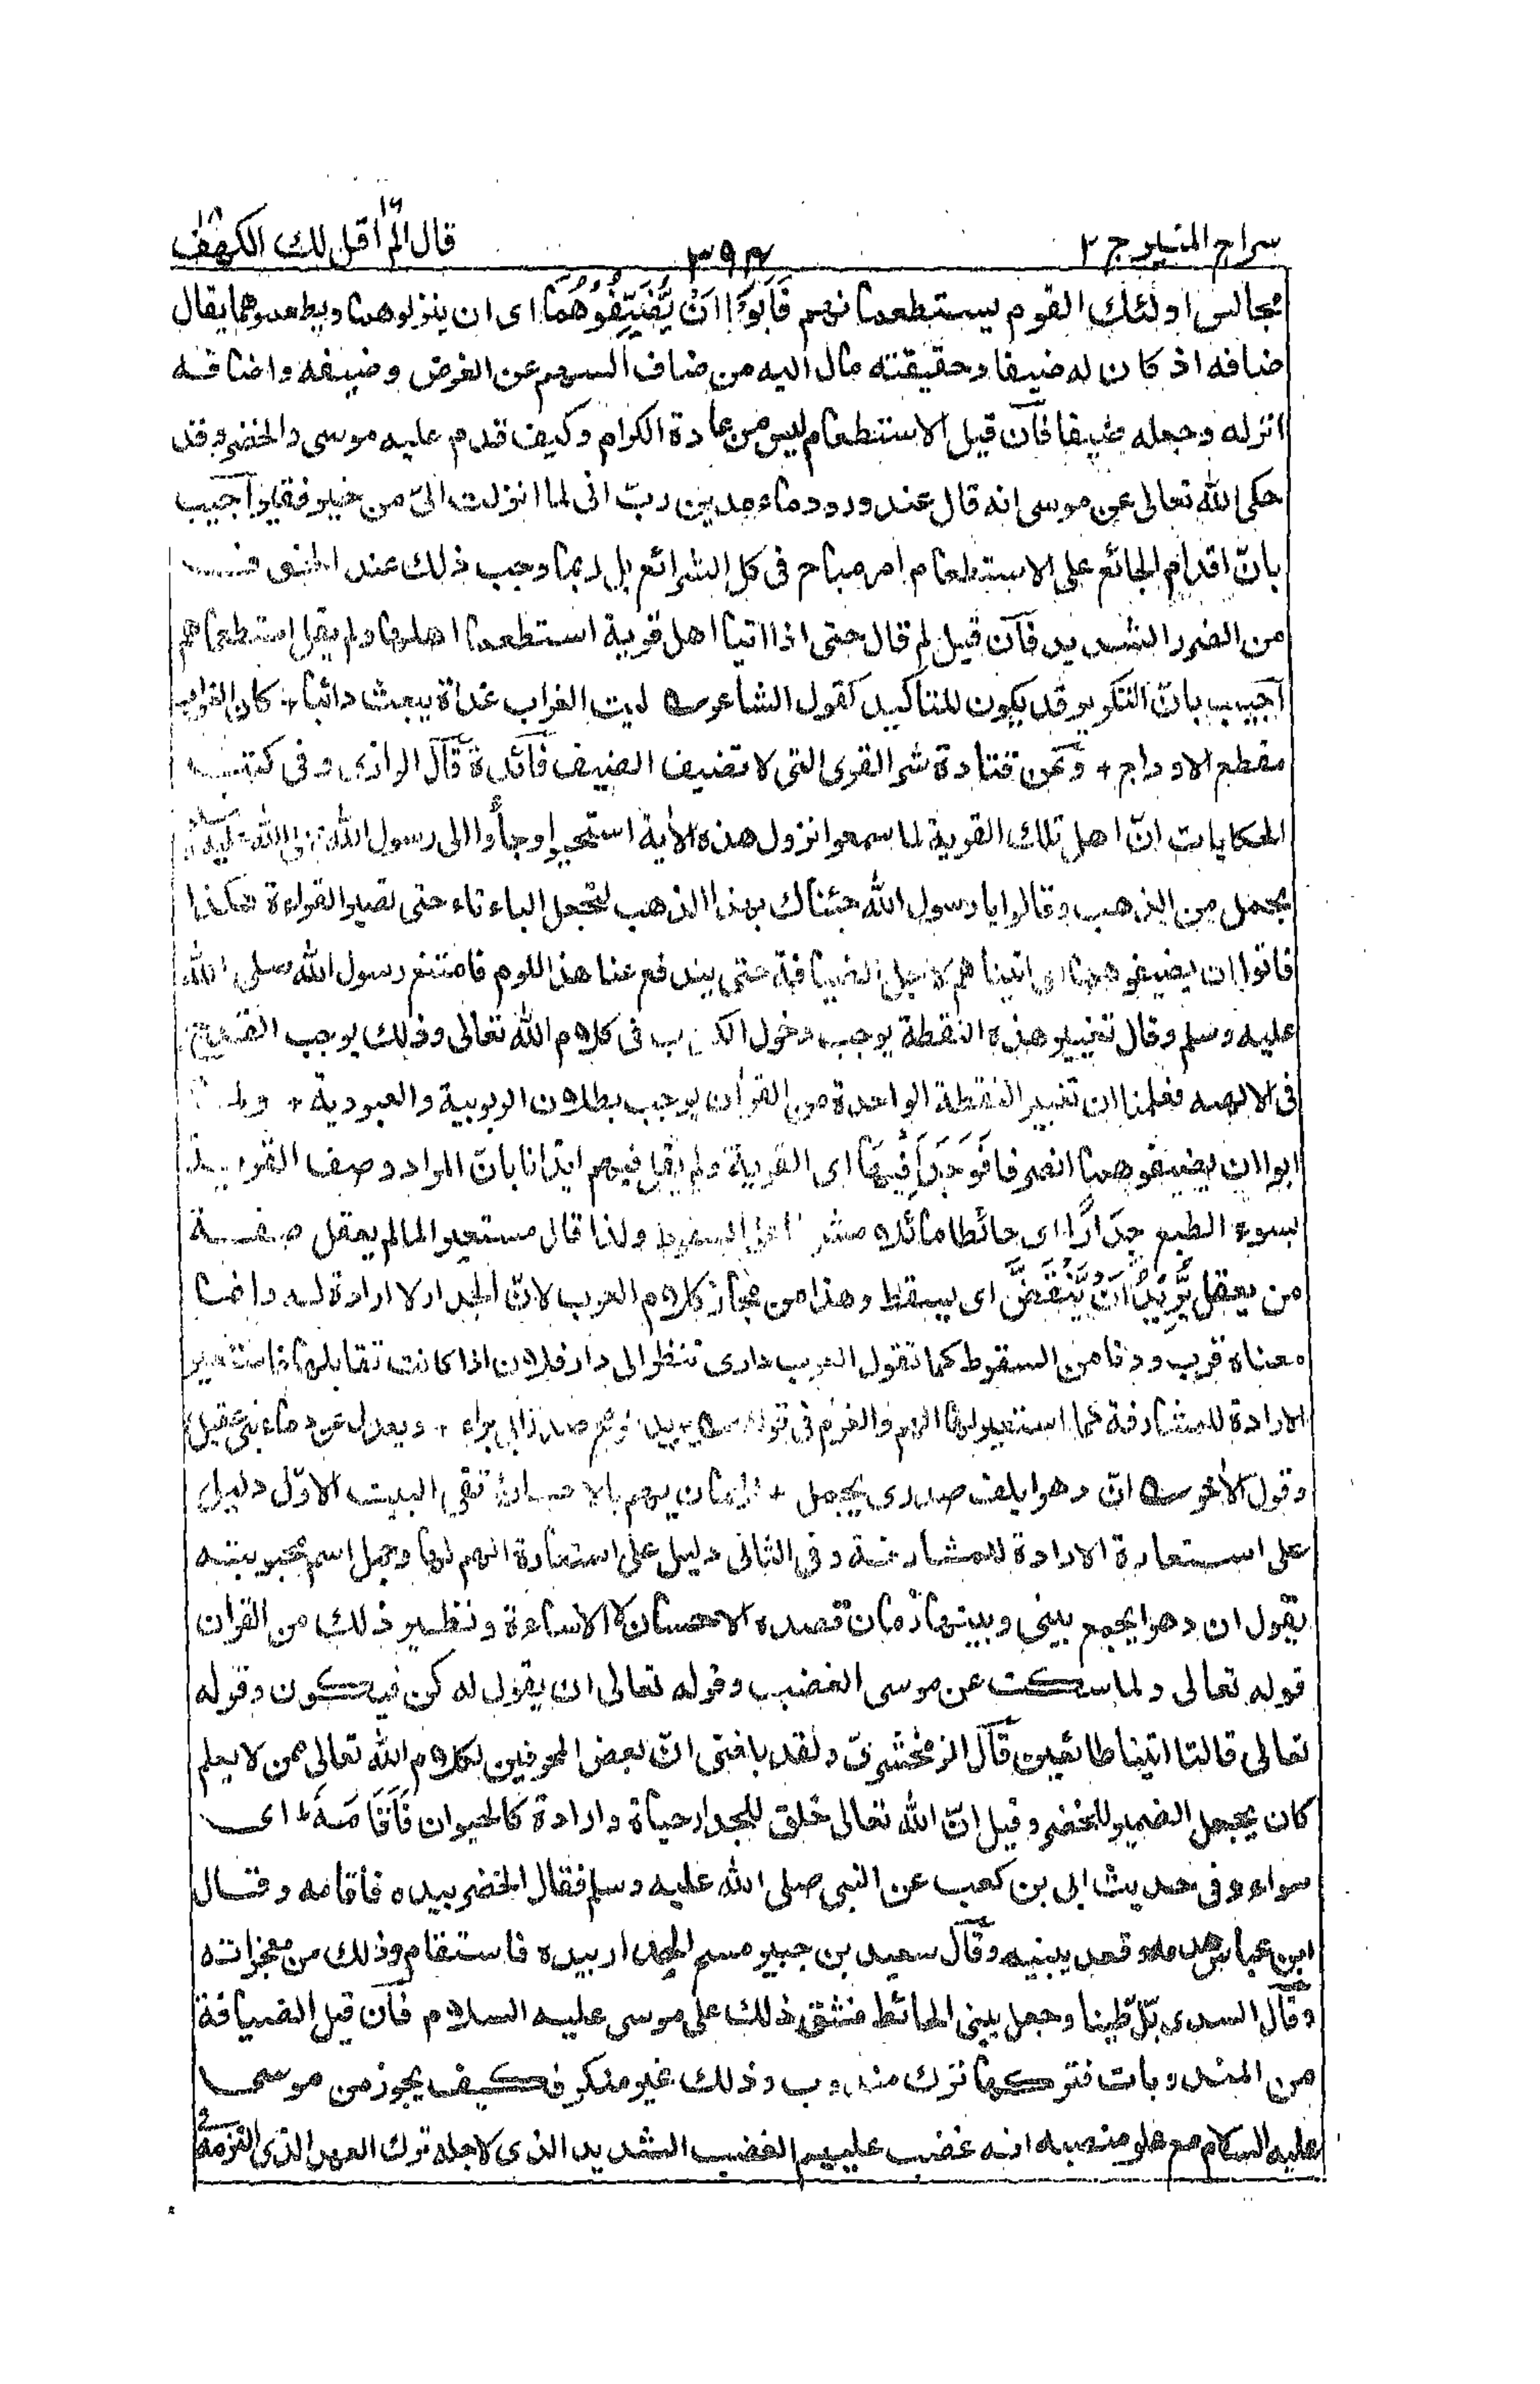 سراج المنير ج ٢ ٣٩٤ قال الم اقل لك ١٦ الكهف ١٨
مجالس اولئك القوم يستطعمانهم فَاَبَوْا اَنْ يُّضَيِّفُوْهُمَا اى ان ينزلوهما ويطعموهما يقال
ضافه اذ كان له ضيفا وحقيقته مال اليه من ضاف السهم عن الغرض وضيفه واضافه
انزله وجعله ضيفا فآن قيل الاستطعام ليس من عادة الكرام وكيف قدم عليه موسى والخضر وقد
حكى الله تعالى عن موسى انه قال عند ورود ماء مدين ربّ انى لما انزلت الىّ من خير فقير آجيب
بانّ اقدام الجائع على الاستطعام امر مباح فى كل الشرائع بل ربما وجب ذلك عند الخوف
من الضرر الشديد فآن قيل لم قال حتى اذا اتيا اهل قرية استطعما اهلها ولم يقل استطعماهم
آجيب بانّ التكرير قد يكون للتاكيد كقول الشاعر ليت الغراب غداة ينعب دائبا + كان الغراب
مقطع الاوداج + وعن قتادة شر القرى التى لا تضيف الضيف فآئدة قآل الرازى وفى كتب
الحكايات انّ اهل تلك القرية لما سمعوا نزول هذه الاية استحيوا وجاؤا الى رسول الله صلى الله عليه وسلم
بحمل من الذهب وقالوا يا رسول الله جئناك بهذا الذهب لتجعل الباء تاء حتى تصير القراءة هكذا
فاتوا ان يضيفوهما اى اتيناهم لاجل الضيافة حتى يندفع عنا هذا اللوم فامتنع رسول الله صلى الله
عليه وسلم وقال تغيير هذه النقطة يوجب دخول الكذب فى كلام الله تعالى وذلك يوجب القدح
فى الالهيه فعلمنا ان تغيير النقطة الواحدة من القران يوجب بطلان الربوبية والعبودية + ولما
ابوا ان يضيفوهما انصرفا فَوَجَدَا فِيْهَا اى القرية ولم يقل فيهم ايذانا بانّ المراد وصف القرية
بسوء الطبع جِدَارًا اى حائطا مائلا مشرفا على السقوط ولذا قال مستعيرا لما لم يعقل صفة
من يعقل يُّرِيْدُ اَنْ يَّنْقَضَّ اى يسقط وهذا من مجاز كلام العرب لانّ الجدار لا ارادة له وانما
معناه قرب ودنا من السقوط كما تقول العرب دارى تنظر الى دار فلان اذا كانت تقابلها فاستعير
الارادة للمشارفة كما استعير لها الهم والعزم فى قوله يريد الرمح صدر ابى براء + ويعدل عن دماء بنى عقيل
وقول الاخر انّ دهرا يلف صدرى بجمل + لزمان يهم بالاحسان ففى البيت الاوّل دليل
على استعارة الارادة للمشارفة وفى الثانى دليل على استعارة الهم لها وجمل اسم محبوبته
يقول ان دهرا يجمع بينى وبينها زمان قصده الاحسان لا الاساءة ونظير ذلك من القران
قوله تعالى ولما سكت عن موسى الغضب وقوله تعالى ان يقول له كن فيكون وقوله
تعالى قالتا اتينا طائعين قآل الزمخشرىّ ولقد بلغنى انّ بعض المحرفين لكلام الله تعالى ممن لا يعلم
كان يجعل الضمير للخضر وقيل انّ الله تعالى خلق للجدار حياة وارادة كالحيوان فَاَقَامَهٗ ط اى
سواه وفى حديث ابى بن كعب عن النبى صلى الله عليه وسلم فقال الخضر بيده فأقامه وقال
ابن عباس هدمه وقعد يبنيه وقآل سعيد بن جبير مسح الجدار بيده فاستقام وذلك من معجزاته
وقآل السدى بلّ طينا وجعل يبنى الحائط فشق ذلك على موسى عليه السلام فآن قيل الضيافة
من المندوبات فتركها ترك مندوب وذلك غير منكر فكيف يجوز من موسى
عليه السلام مع علو منصبه انه غضب عليهم الغضب الشديد الذى لاجله ترك العهد الذى التزمه